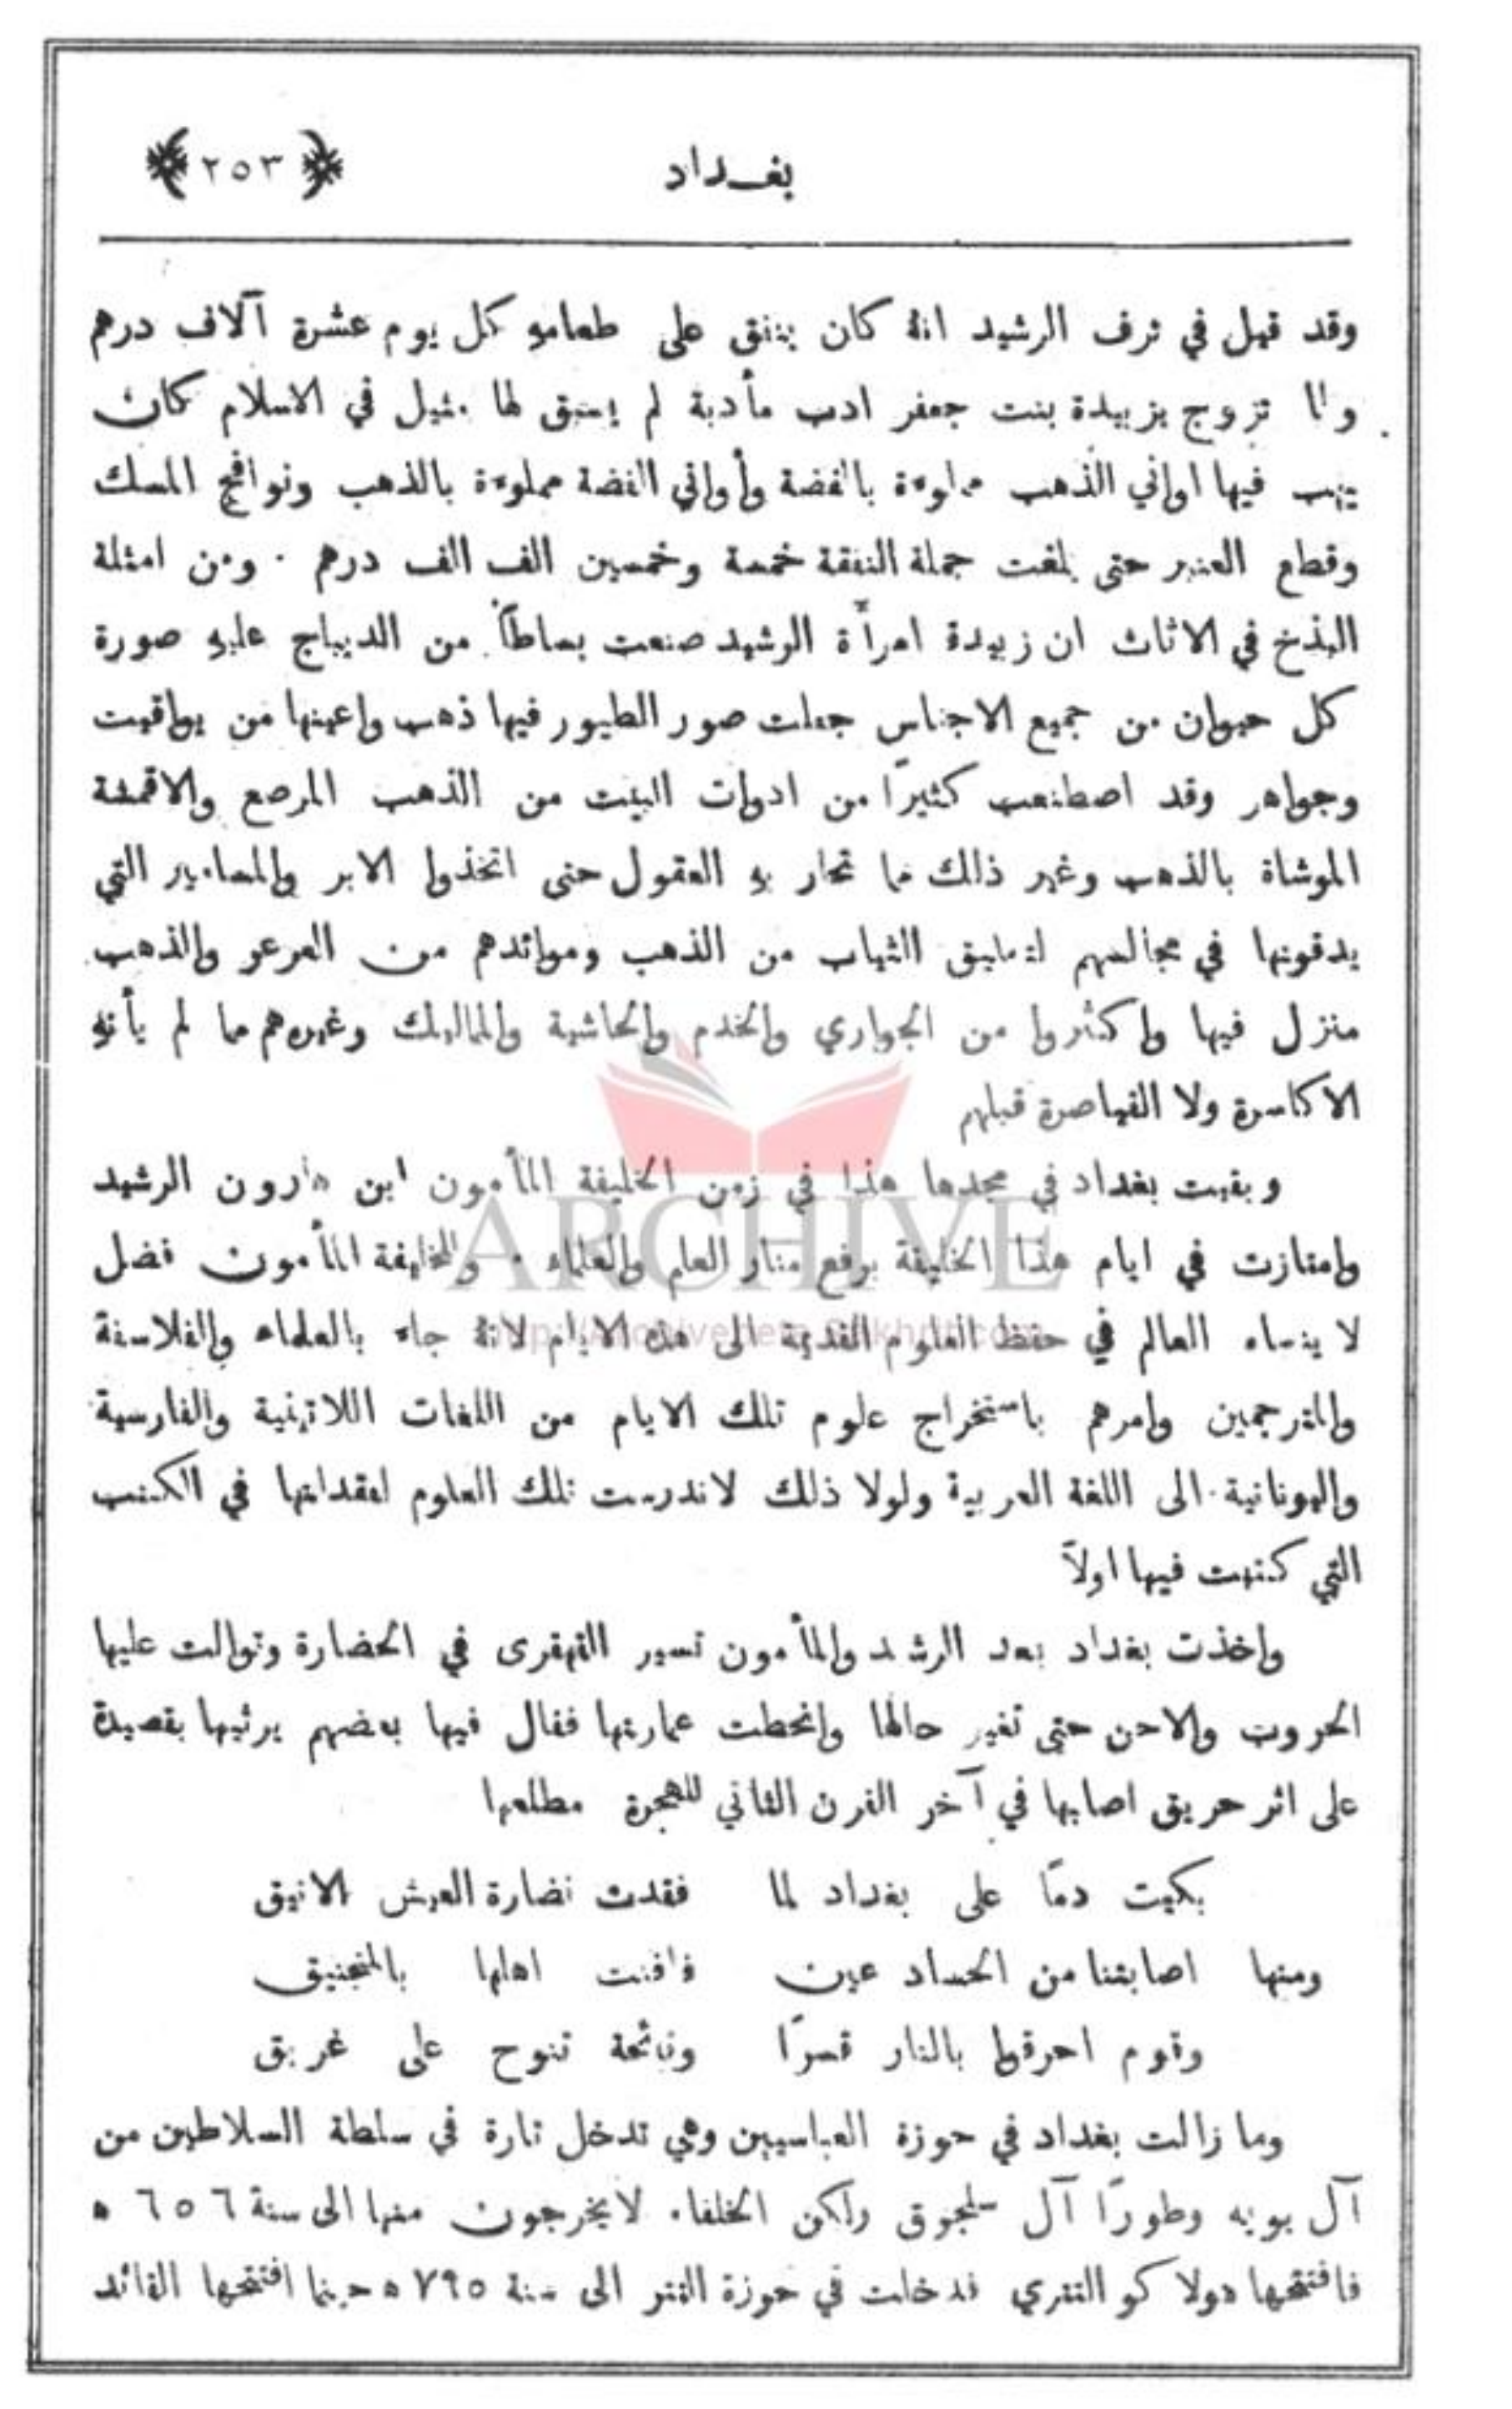 بغداد ﴿٢٥٣﴾
وقد قيل في ترف الرشيد انهُ كان ينفق على طعامهِ كل يوم عشرة آلاف درهم
ولما تزوج بزبيدة بنت جعفر ادب مأدبة لم يسبق لها مثيل في الاسلام كان
يهب فيها اواني الذهب مملوءة بالفضة وأواني الفضة مملوءة بالذهب ونوافج المسك
وقطاع العنبر حتى بلغت جملة النفقة خمسة وخمسين الف الف درهم . ومن امثلة
البذخ في الاثاث ان زبيدة امرأة الرشيد صنعت بساطاً من الديباج عليهِ صورة
كل حيوان من جميع الاجناس جعلت صور الطيور فيها ذهب واعينها من يواقيت
وجواهر وقد اصطنعت كثيرًا من ادوات البيت من الذهب المرصع والاقمشة
الموشاة بالذهب وغير ذلك مما تحار بهِ العقول حتى اتخذوا الابر والمسامير التي
يدقونها في مجالسهم لتعليق الثياب من الذهب وموائدهم من العرعر والذهب
منزل فيها واكثروا من الجواري والخدم والحاشية والماليك وغيرهم مما لم يأتهِ
الاكاسرة ولا القياصرة قبلهم
وبقيت بغداد في مجدها هذا في زمن الخليفة المأمون ابن هارون الرشيد
وامتازت في ايام هذا الخليفة برفع منار العلم والعلماء . والخليفة المأمون فضل
لا ينساه العالم في حفظ العلوم القديمة الى هذه الايام لانهُ جاء بالعلماء والفلاسفة
والمترجمين وامرهم باستخراج علوم تلك الايام من اللغات اللاتينية والفارسية
واليونانية الى اللغة العربية ولولا ذلك لاندرست تلك العلوم لفقدانها في الكتب
التي كتبت فيها اولاً
واخذت بغداد بعد الرشيد والمأمون تسير القهقرى في الحضارة وتوالت عليها
الحروب والاحن حتى تغير حالها وانحطت عمارتها فقال فيها بعضهم يرثيها بقصيدة
على اثر حريق اصابها في آخر القرن الثاني للهجرة مطلعها
بكيت دمًا على بغداد لما فقدت نضارة العيش الانيق
ومنها اصابتنا من الحساد عين فافنت اهلها بالمنجنيق
وقوم احرقوا بالنار قسرًا ونائحة تنوح على غريق
وما زالت بغداد في حوزة العباسيين وهي تدخل تارة في سلطة السلاطين من
آل بويه وطورًا آل سلجوق ولكن الخلفاء لا يخرجون منها الى سنة ٦٥٦ ه
فافتتحها هولاكو التتري فدخلت في حوزة التتر الى سنة ٧٩٥ ه حينما افتتحها القائد
ARCHIVE